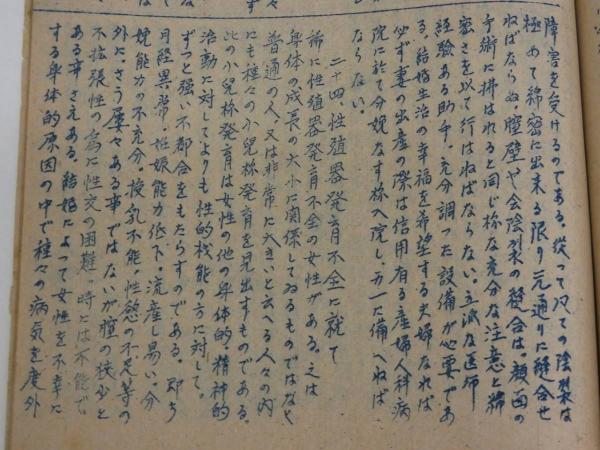 障害を受けるのである。従って凡ての陰裂は
極めて綿密に出来る限り元通りに縫合せ
ねばならぬ。膣壁や会陰裂の縫合は。顔面の
手術に拂はれると同じ様な充分な注意と綿
密さを以て行はねばならない。立派な医師
経験ある助手。充分調った設備が必要であ
る。結婚生活の幸福を希望する夫婦なれば
必ず妻の出産の際は信用有る産婦人科病
院に於て分娩なす様入院し、万一に備へねば
ならない。
二十四、性殖器発育不全に就て
稀に性殖器発育不全の女性がある。之は
身体の成長の大小に関係してゐるものではなく
普通の人、又は非常に大きいと云へる人々の内
にも種々の小児様発育を見出すものである。
此の小児様発育は女性の他の身体的・精神的
活動に対してよりも性的機能の方に対して。
ずっと強い不都合をもたらすのである。即ち
月経異常・妊娠能力低下。流産し易い。分
娩能力の不充分。授乳不能。性慾の不足等の
外に。さう屡々ある事ではないが膣の狭少と
不拡張性の為に性交の困難。時には不能で
ある事さえある。結婚によって女性を不幸に
する身体的原因の中で種々の病気を度外